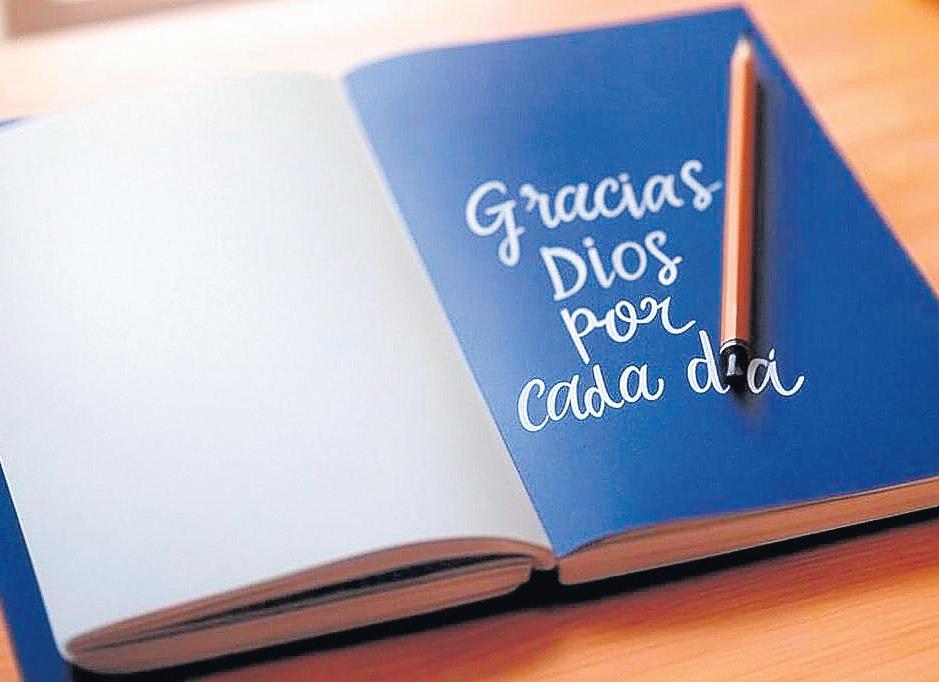 Gracias
Dios
por
cada día